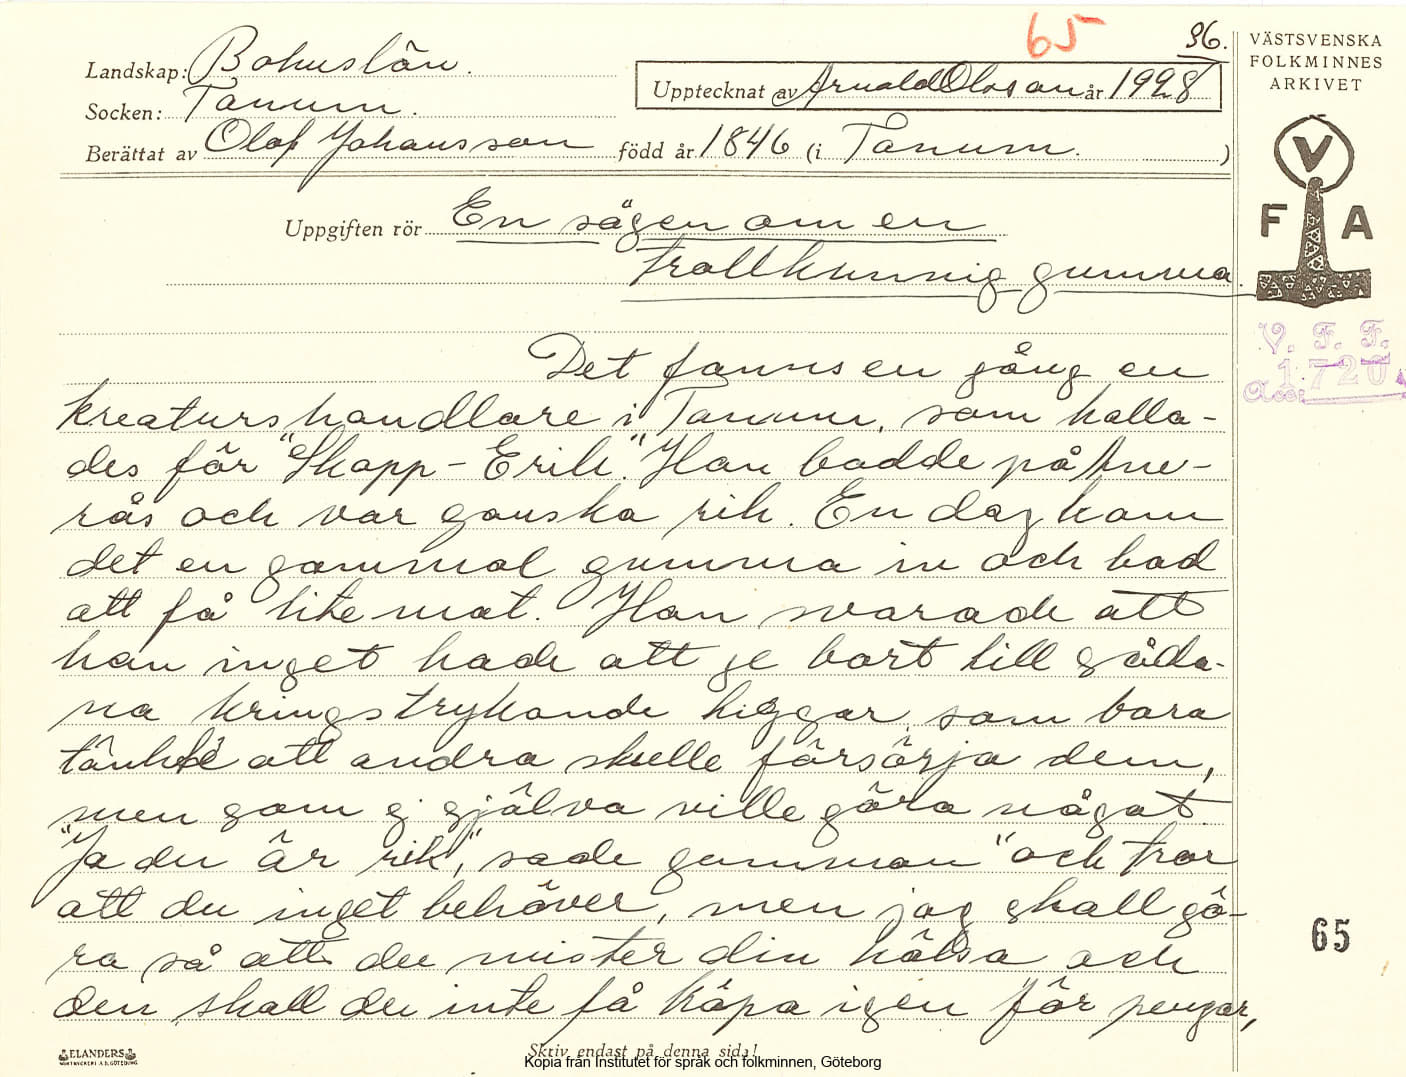 65
96.
VÄSTSVENSKA
FOLKMINNES
ARKIVET
Landskap: Bohuslän.
Upptecknat av Arnold Olosson år 1928
Socken: Tanum.
Berättat av Olof Johansson född år 1846 (i Tanum. )
V
F A
Uppgiften rör En sägen om en
trollkunnig gumma.
V. F. F.
Acc: 1720
Det fanns en gång en
kreaturshandlare i Tanum, som kalla-
des för "Skapp-Erik". Han bodde på
rås och var ganska rik. En dag kom
det en gammal gumma in och bad
att få lite mat. Han svarade att
han inget hade att ge bort till såda-
na kringstrykande higgar, som bara
tänkte att andra skulle försörja dem,
men som ej själva ville göra något.
"Ja du är rik", sade gumman "och tror
att du inget behöver, men jag skall gö-
ra så att du mister din hälsa och
den skall du inte få köpa igen för pengar,
65
ELANDERS
Skriv endast på denna sida!
Kopia från Institutet för språk och folkminnen, Göteborg